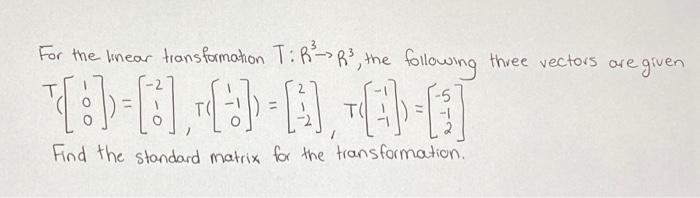 For the linear transformation T: R³→R³, the following three vectors are given
T([1 0 0]) = [-2 1 0], T([1 -1 0]) = [2 1 -2], T([-1 1 -1]) = [-5 -1 2]
Find the standard matrix for the transformation.